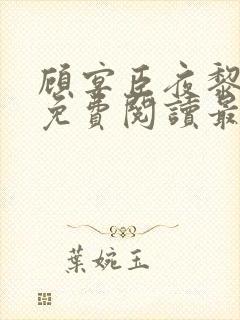 顾宴臣夜黎
免費閱讀最
葉婉玉